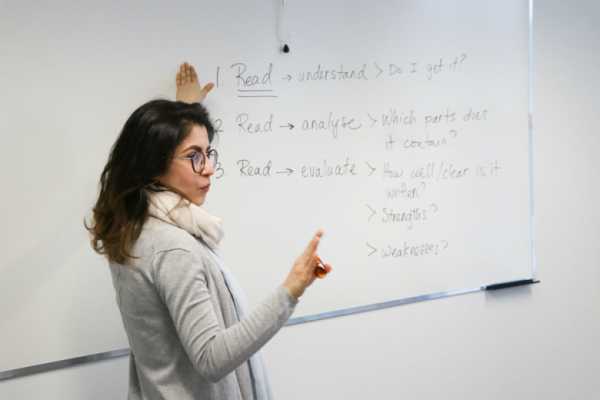 1 Read → understand > Do I get it?
2 Read → analyse > Which parts does
it contain?
3. Read → evaluate > How well/clear is it
written?
> Strengths?
> Weaknesses?